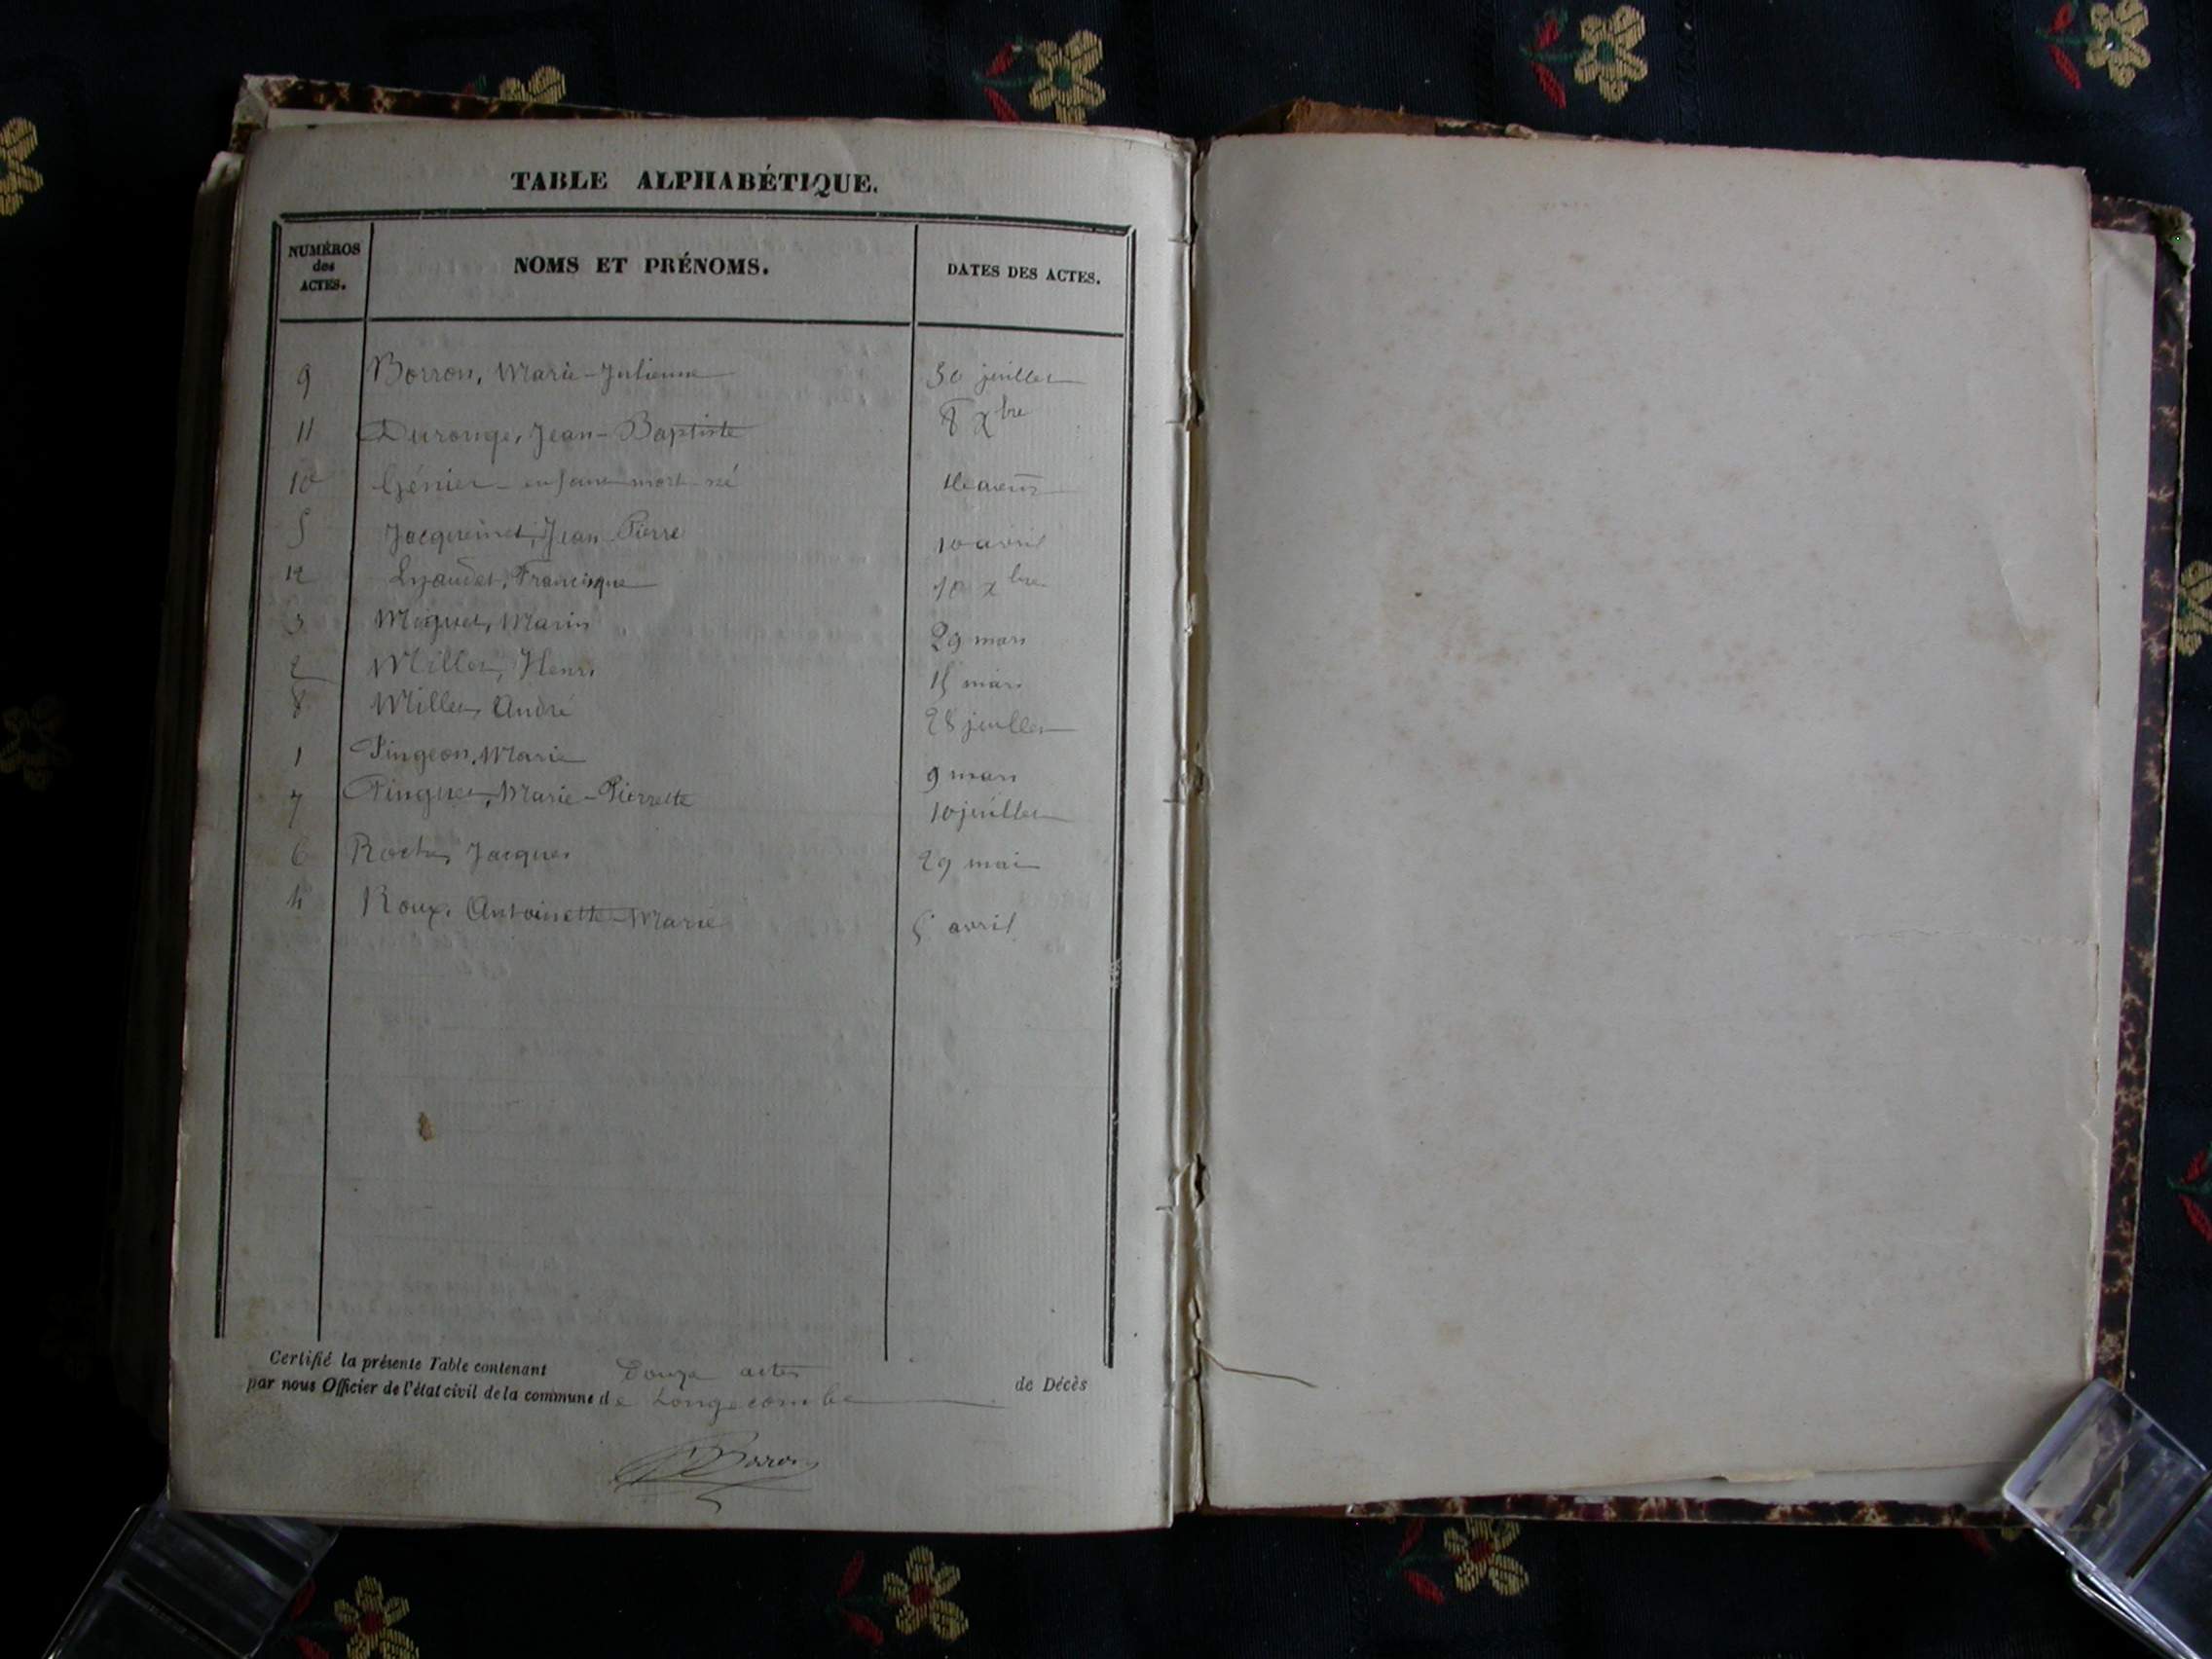 TABLE ALPHABÉTIQUE.
NUMÉROS des ACTES. NOMS ET PRÉNOMS. DATES DES ACTES.
9 Borron, Marie-Julienne 30 juillet
11 Durouge, Jean-Baptiste 8 Xbre
10 Génier enfant mort-né août
5 Jacqueinet, Jean Pierre 10 avril
12 Lyaudet, Francisque 10 Xbre
3 Miguet, Marin 29 mars
2 Millet, Henri 15 mars
8 Millet, André 28 juillet
1 Pingeon, Marie 9 mars
7 Pinguet, Marie-Pierrette 10 juillet
6 Roche, Jacques 29 mai
4 Roux, Antoinette-Marie 5 avril
Certifié la présente Table contenant Douze actes de Décès
par nous Officier de l'état civil de la commune de Longecombe
Borron